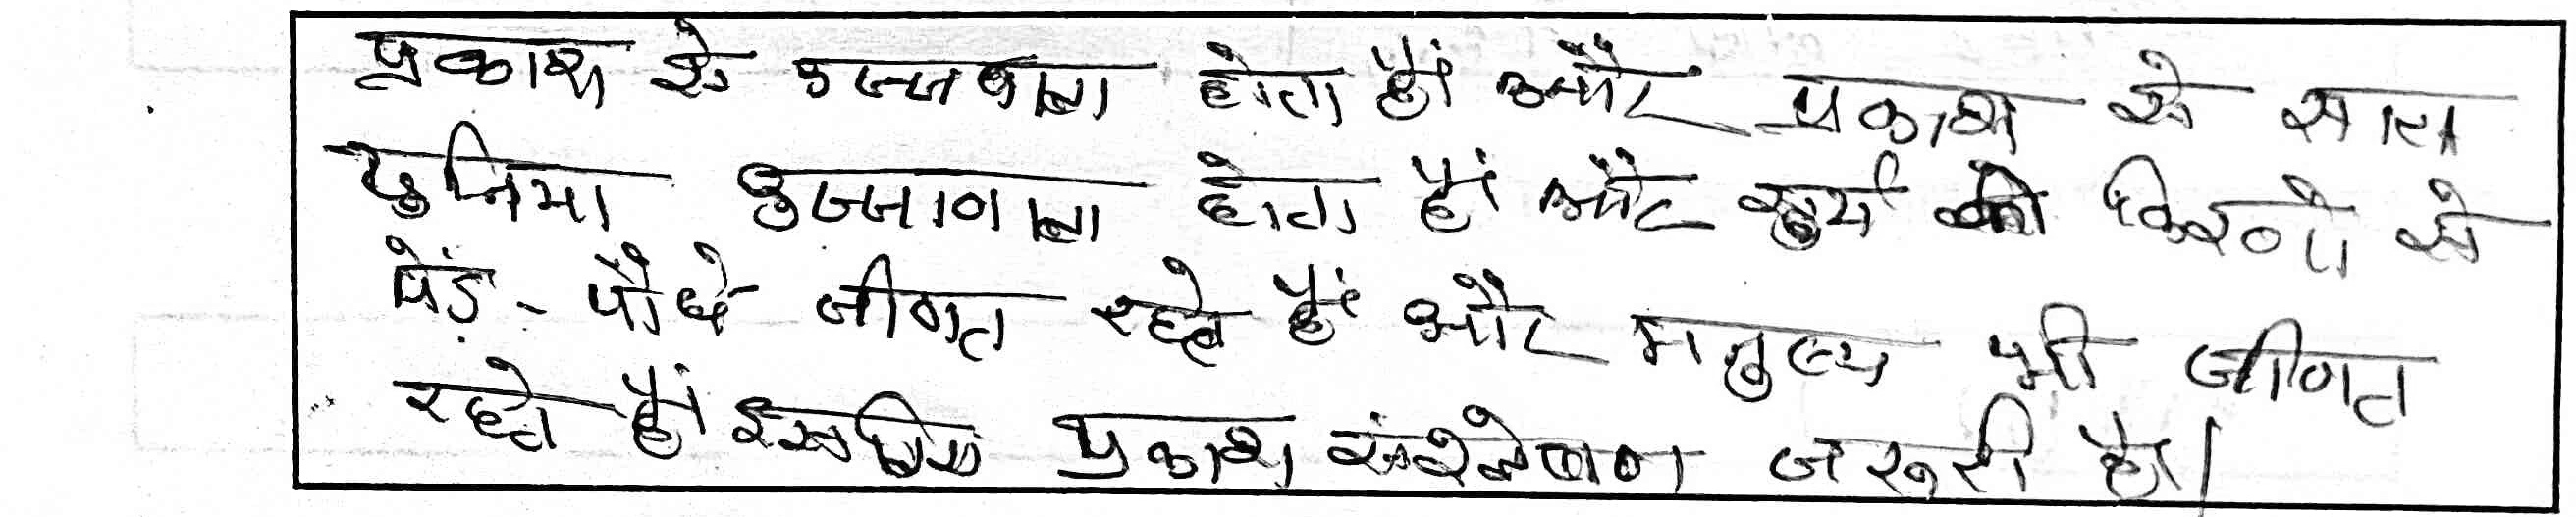 प्रकाश से होता हैं और प्रकाश से सारा
दुनिया होता हैं और सुर्य की किरणो से
पेंड़ - पौधे जीवात रहते हैं और मनुष्य भी जीवात
रहते हैं इसलिए प्रकाश संश्लेषण जरूरी है।